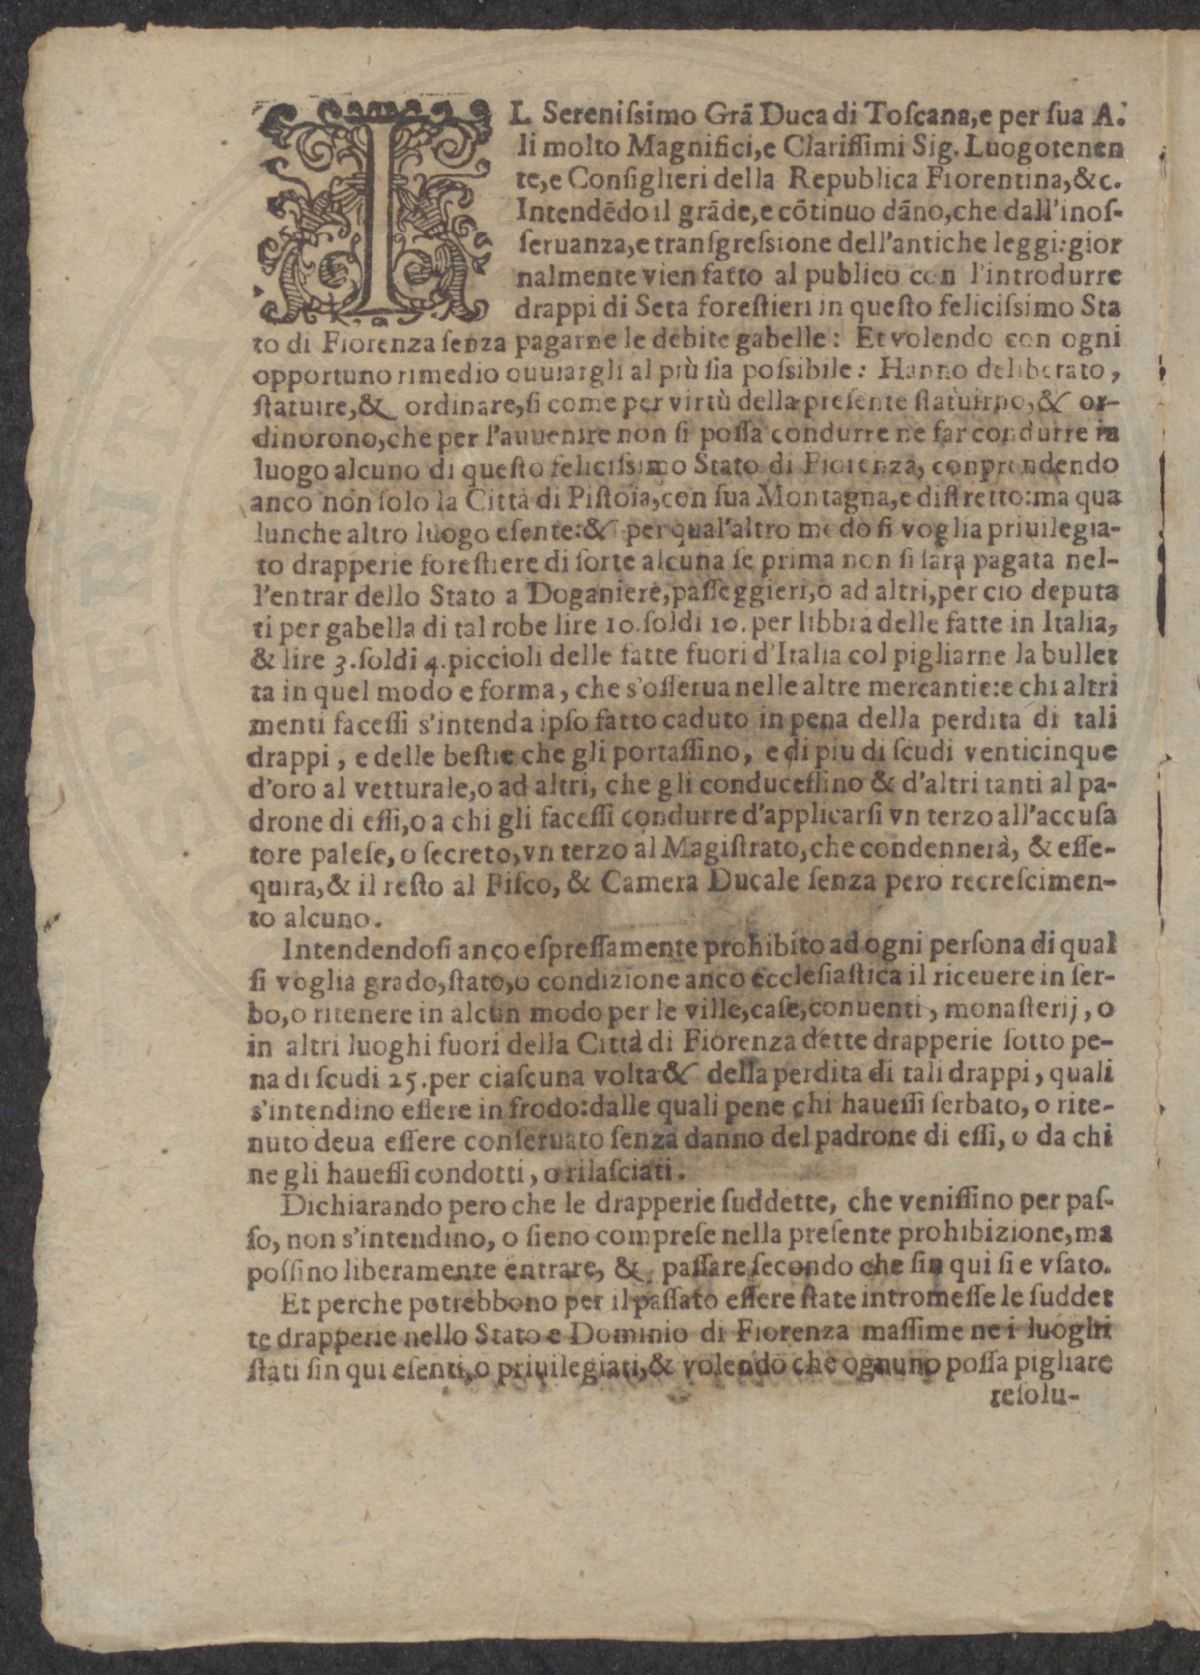 IL Sereniſsimo Grã Duca di Toſcana,e per ſua A.
li molto Magnifici,e Clariſſimi Sig. Luogotenen
te,e Conſiglieri della Republica Fiorentina,&c.
Intendẽdo il grãde,e cõtinuo dãno,che dall'inoſ-
ſeruanza,e tranſgreſsione dell'antiche leggi:gior
nalmente vien fatto al publico con l'introdurre
drappi di Seta foreſtieri in queſto feliciſsimo Sta
to di Fiorenza ſenza pagarne le debite gabelle: Et volendo con ogni
opportuno rimedio ouuiargli al più ſia poſsibile: Hanno deliberato,
ſtatuire,& ordinare,ſi come per virtù della preſente ſtatuirno,& or-
dinorono,che per l'auuenire non ſi poſſa condurre ne far condurre in
luogo alcuno di queſto feliciſsimo Stato di Fiorenza, conprendendo
anco non ſolo la Città di Piſtoia,con ſua Montagna,e diſtretto:ma qua
lunche altro luogo eſente:& per qual'altro modo ſi voglia priuilegia-
to drapperie foreſtiere di ſorte alcuna ſe prima non ſi ſara pagata nel-
l'entrar dello Stato a Doganiere,paſſeggieri,o ad altri,per cio deputa
ti per gabella di tal robe lire 10.ſoldi 10. per libbra delle fatte in Italia,
& lire 3.ſoldi 4.piccioli delle fatte fuori d'Italia col pigliarne la bullet
ta in quel modo e forma, che s'oſſerua nelle altre mercantie:e chi altri
menti faceſſi s'intenda ipſo fatto caduto in pena della perdita di tali
drappi, e delle beſtie che gli portaſſino, e di piu di ſcudi venticinque
d'oro al vetturale,o ad altri, che gli conduceſſino & d'altri tanti al pa-
drone di eſſi,o a chi gli faceſſi condurre d'applicarſi vn terzo all'accuſa
tore paleſe, o ſecreto,vn terzo al Magiſtrato,che condennerà, & eſſe-
quira,& il reſto al Fiſco, & Camera Ducale ſenza pero recreſcimen-
to alcuno.
Intendendoſi anco eſpreſſamente prohibito ad ogni perſona di qual
ſi voglia grado,ſtato,o condizione anco eccleſiaſtica il riceuere in ſer-
bo,o ritenere in alcun modo per le ville,caſe,conuenti, monaſterij, o
in altri luoghi fuori della Città di Fiorenza dette drapperie ſotto pe-
na di ſcudi 25.per ciaſcuna volta & della perdita di tali drappi, quali
s'intendino eſſere in frodo:dalle quali pene chi haueſſi ſerbato, o rite-
nuto deua eſſere conſeruato ſenza danno del padrone di eſſi, o da chi
ne gli haueſſi condotti, o rilaſciati.
Dichiarando pero che le drapperie ſuddette, che veniſſino per paſ-
ſo, non s'intendino, o ſieno compreſe nella preſente prohibizione,ma
poſſino liberamente entrare, & paſſare ſecondo che ſin qui ſi e vſato.
Et perche potrebbono per il paſſato eſſere ſtate intromeſſe le ſuddet
te drapperie nello Stato e Dominio di Fiorenza maſſime ne i luoghi
ſtati ſin qui eſenti,o priuilegiati,& volendo che ognuno poſſa pigliare
reſolu-